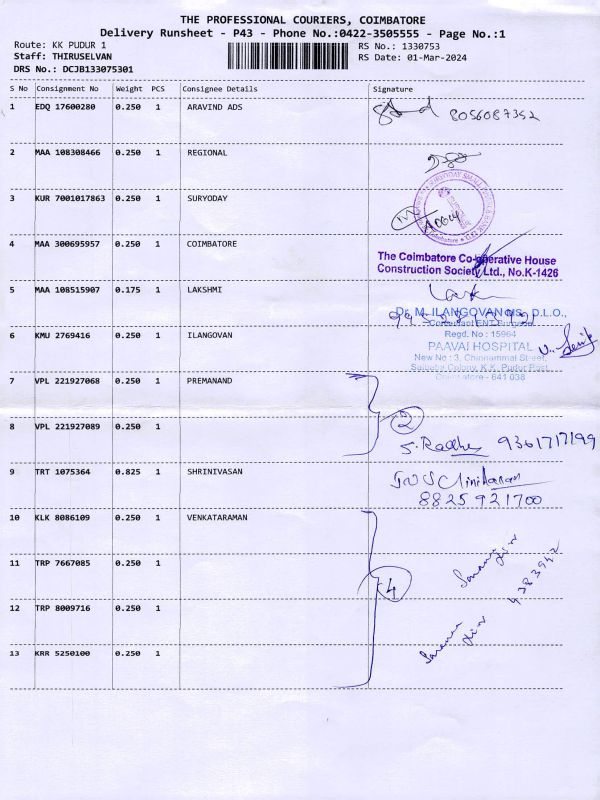 THE PROFESSIONAL COURIERS, COIMBATORE
Delivery Runsheet - P43 - Phone No.:0422-3505555 - Page No.:1
Route: KK PUDUR 1 RS No.: 1330753
Staff: THIRUSELVAN RS Date: 01-Mar-2024
DRS No.: DCJB133075301
S No Consignment No Weight PCS Consignee Details Signature
1 EDQ 17600280 0.250 1 ARAVIND ADS 8056087352
2 MAA 108308466 0.250 1 REGIONAL
3 KUR 7001017863 0.250 1 SURYODAY
4 MAA 300695957 0.250 1 COIMBATORE
The Coimbatore Co-operative House
Construction Society Ltd., No.K-1426
5 MAA 108515907 0.175 1 LAKSHMI
Dr. M. ILANGOVAN MS., D.L.O.,
Consultant ENT Surgeon
6 KMU 2769416 0.250 1 ILANGOVAN Regd. No : 15964
PAAVAI HOSPITAL
New No : 3, Chinnammal Street,
Saibaba Colony, K.K. Pudur Post,
Coimbatore - 641 038
7 VPL 221927068 0.250 1 PREMANAND
8 VPL 221927089 0.250 1 2
S. Radha 9361717199
9 TRT 1075364 0.825 1 SHRINIVASAN
8825921700
10 KLK 8086109 0.250 1 VENKATARAMAN
11 TRP 7667085 0.250 1 4
12 TRP 8009716 0.250 1
13 KRR 5250100 0.250 1